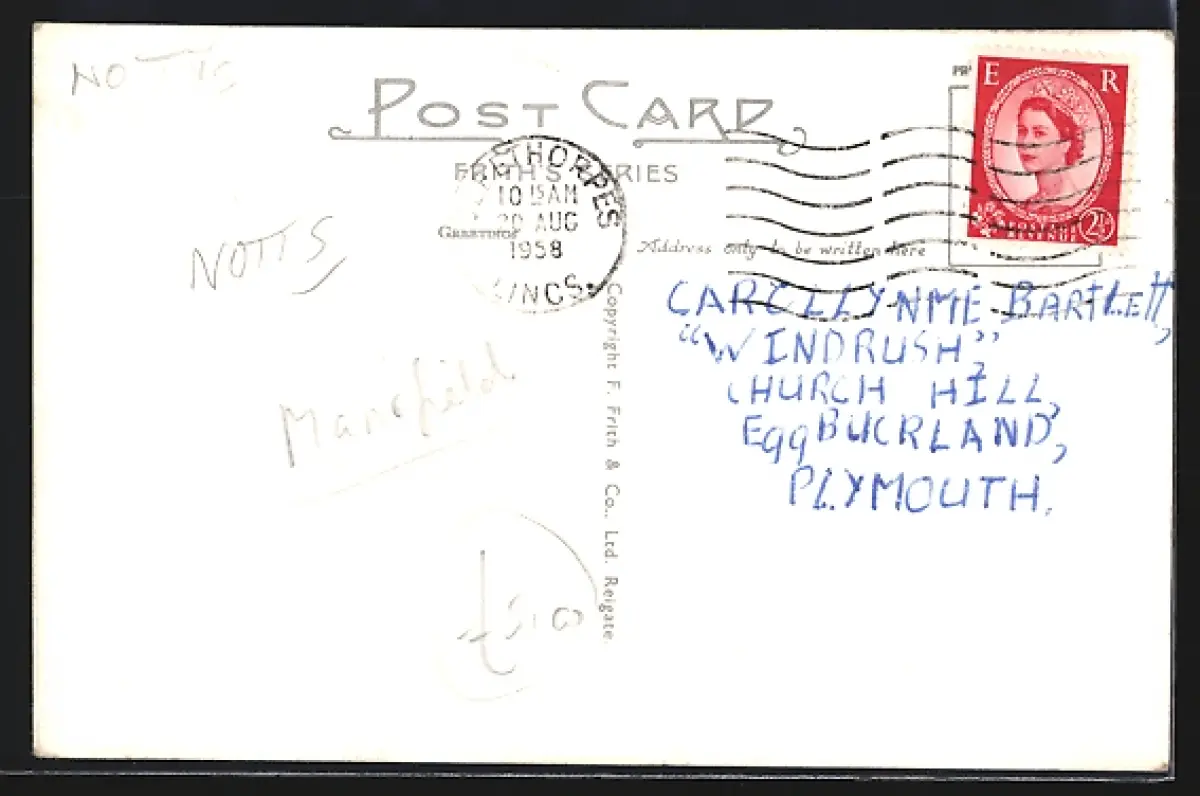 NOTTS
POST CARD
FRITH'S SERIES
E R
THORPES
10 15 AM
20 AUG
1958
LINCS.
GREETINGS
Address only to be written here
2½
REVENUE
NOTTS
Mansfield
Copyright F. Frith & Co., Ltd. Reigate.
BARTLETT,
"WINDRUSH,"
CHURCH HILL,
EggBUCKLAND,
PLYMOUTH.